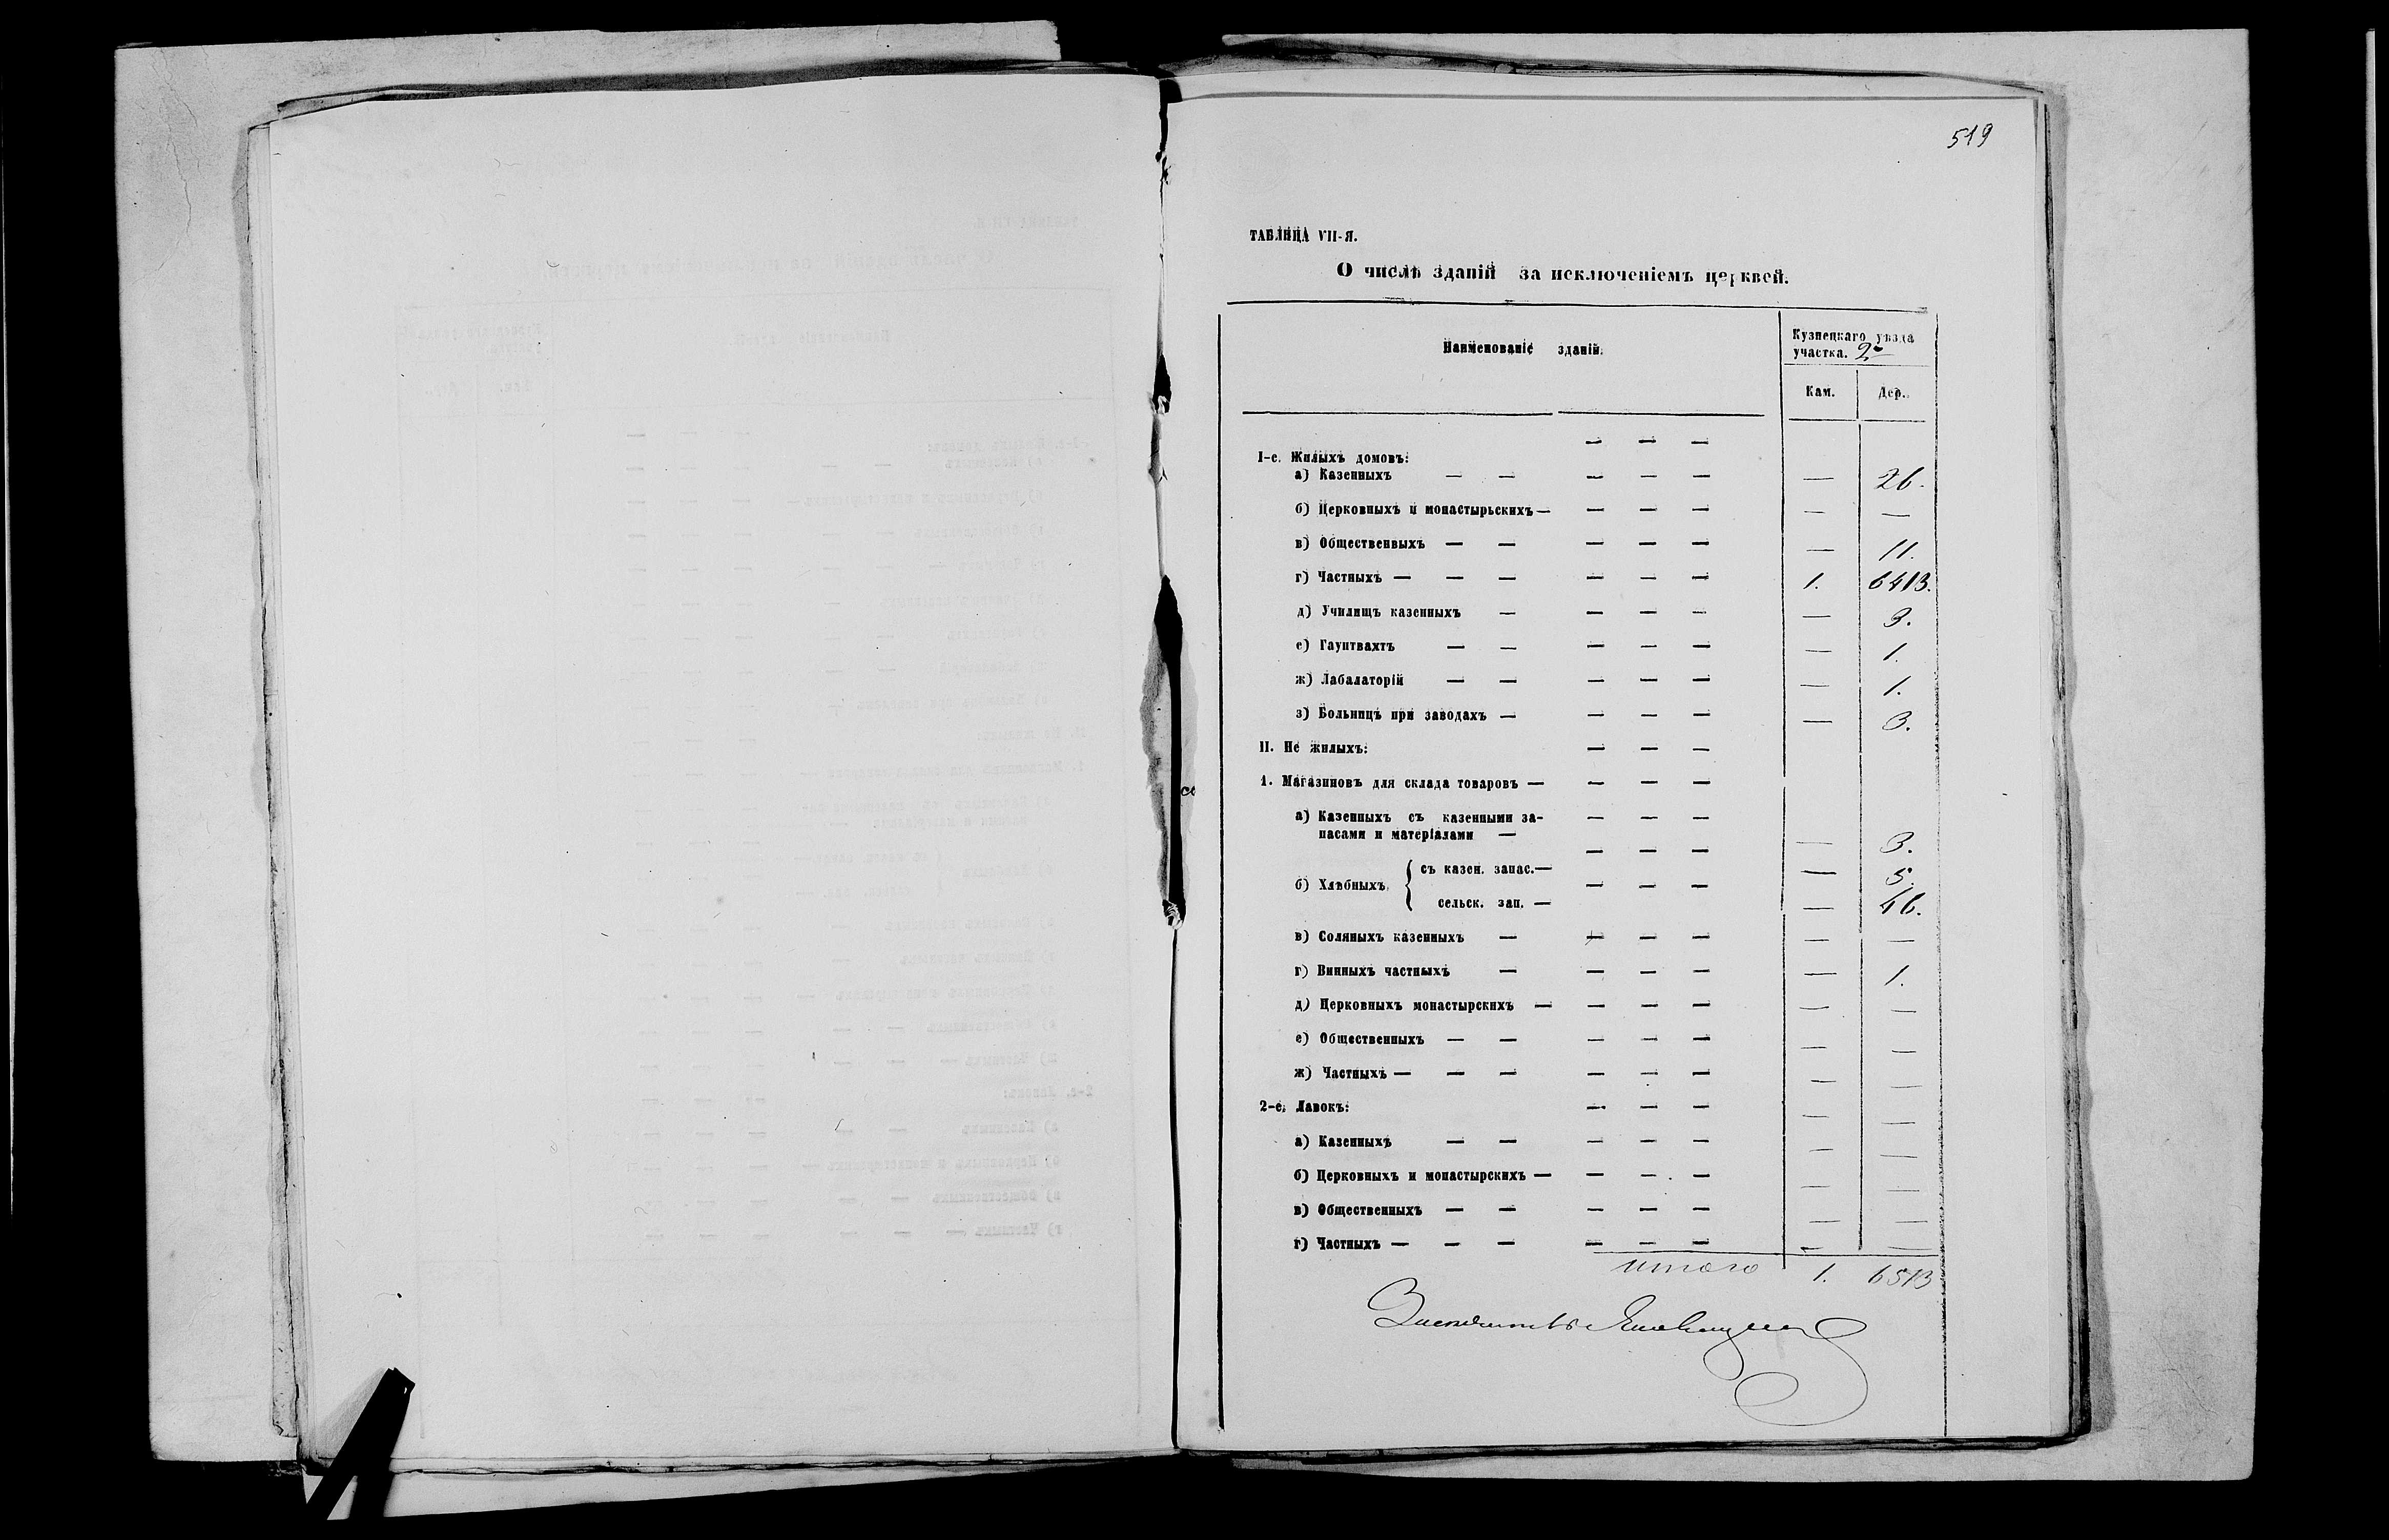 519
ТАБЛИЦА VII-Я.
О числѣ зданій за исключеніемъ церквей.
Наименованіе зданій.
Кузнецкаго уѣзда
участка. 2
Кам. Дер.
I-е. Жилыхъ домовъ: — — —
а) Казенныхъ — — — — — — 26.
б) Церковныхъ и монастырьскихъ — — — — — —
в) Общественныхъ — — — — — — 11.
г) Частныхъ — — — — — — 1. 6413.
д) Училищъ казенныхъ — — — — — 3.
е) Гауптвахтъ — — — — — — 1.
ж) Лабалаторій — — — — — — 1.
з) Больницъ при заводахъ — — — — — 3.
II. Не жилыхъ: — — —
1. Магазиновъ для склада товаровъ — — — —
а) Казенныхъ съ казенными за- — — —
пасами и матеріалами — — 3.
— — —
съ казен. запас. — — 5.
б) Хлѣбныхъ — — —
сельск. зап. — — 46.
в) Соляныхъ казенныхъ — — — — — —
г) Винныхъ частныхъ — — — — — 1.
д) Церковныхъ монастырскихъ — — — — — —
е) Общественныхъ — — — — — — —
ж) Частныхъ — — — — — — — —
2-е. Лавокъ: — — — — —
а) Казенныхъ — — — — — — —
б) Церковныхъ и монастырскихъ — — — — — —
в) Общественныхъ — — — — — — —
г) Частныхъ — — — — — — — —
итого 1. 6513